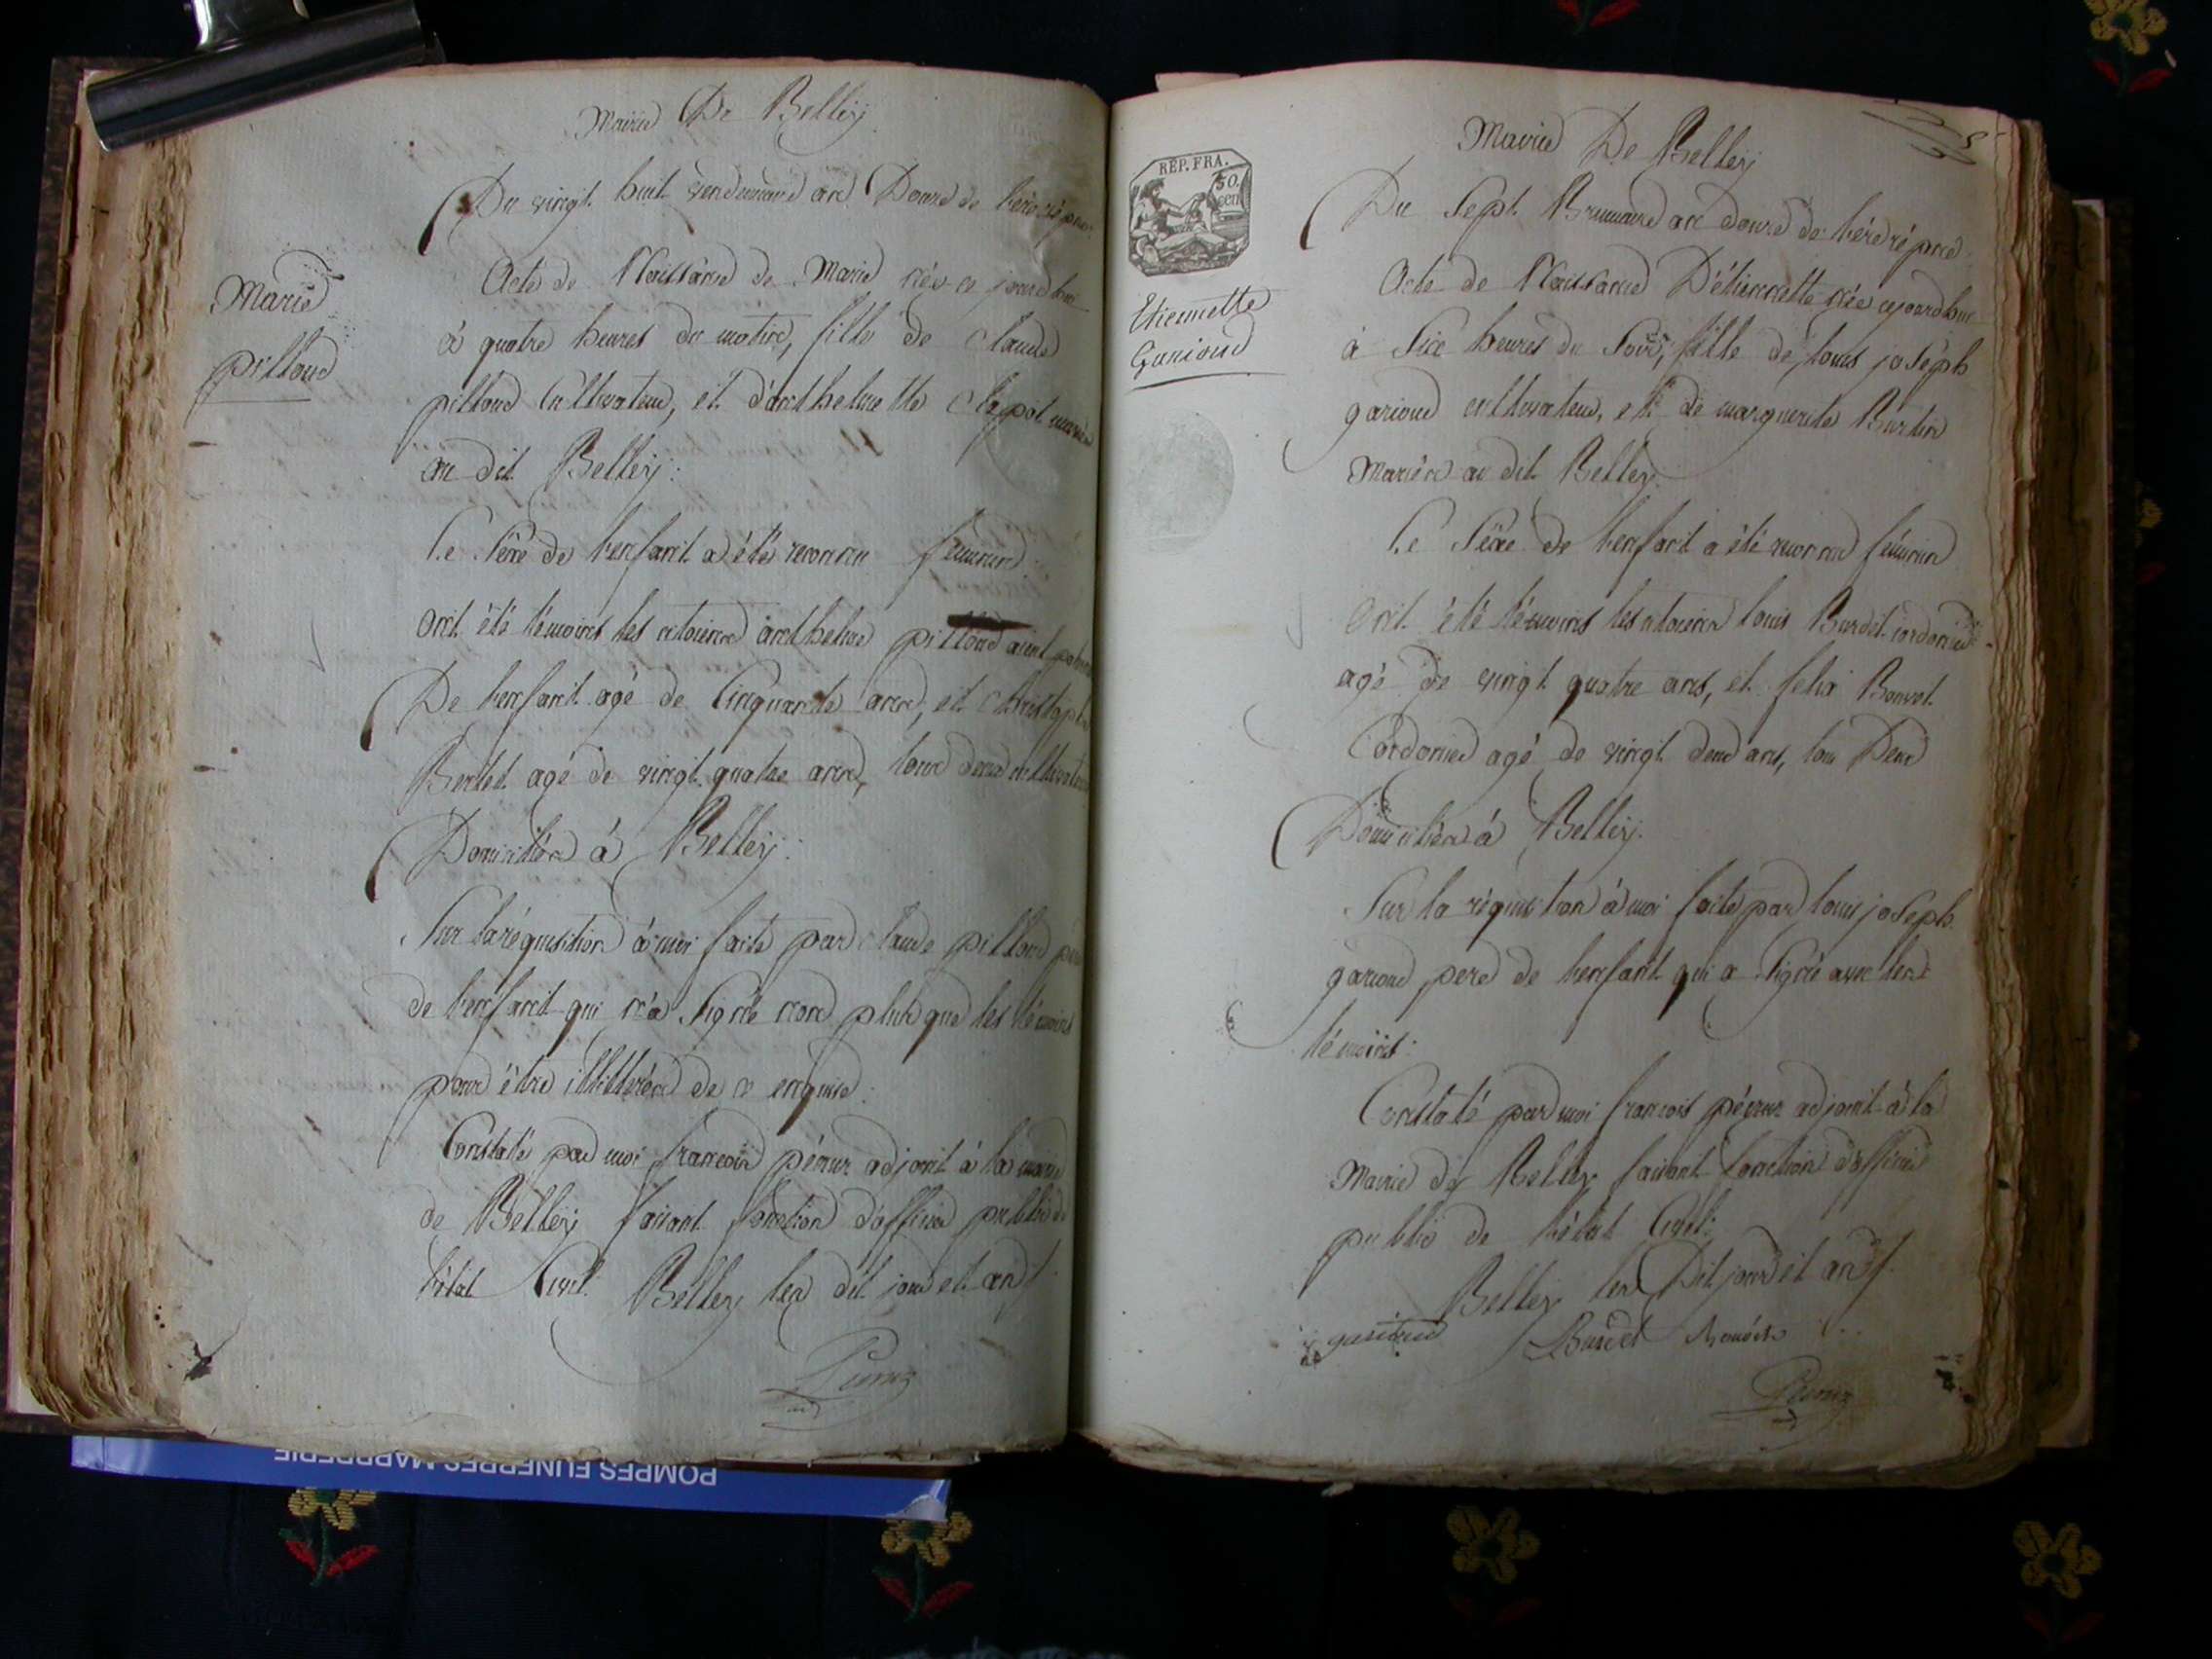 Mairie De Belleÿ
Du vingt huit vendemiaire an Douze de l'ère
Marie
pilloud
Acte de Naissance de Marie née ce jourd'hui
à quatre heures du matin, fille de Claude
pilloud Cultivateur, et d'anthelmette
au dit Belleÿ:
Le Sexe de l'enfant a été reconnu feminin
ont été témoins les citoiens anthelme pilloud
De l'enfant agé de Cinquante ans, et
agé de vingt quatre ans, tous deux
Domiciliés à Belleÿ:
Sur la réquisition à moi faite par Claude pilloud
de l'enfant qui n'a Signé non plus que les témoins
pour être illitérés de ce enquis:
Constaté par moi francois adjoint à la mairie
de Belleÿ faisant fonction d'officier public de
l'état Civil. Belley les dit jour et an
REP. FRA.
50. cen
Etiennette
Mairie De Belleÿ
Du Sept Brumaire an douze de l'ère
Acte de Naissance D'étiennette née cejourd'hui
à Six heures du Soir, fille de louis joseph
garioud cultivateur, et de marguerite
Mariés au dit Belley.
Le Sexe de l'enfant a été reconnu féminin
Ont été témoins les citoiens louis Burdet cordonier
agé de vingt quatre ans, et felix
Cordonier agé de vingt deux ans, tous Deux
Domiciliés à Belleÿ.
Sur la réquisition à moi faite par louis joseph
garioud pere de l'enfant qui a Signé avec les
témoins:
Constaté par moi francois adjoint à la
Mairie de Belley faisant fonction d'officier
public de l'état Civil:
Belley les Dit jour et an
garioud Burdet
POMPES FUNEBRES MARBRERIE